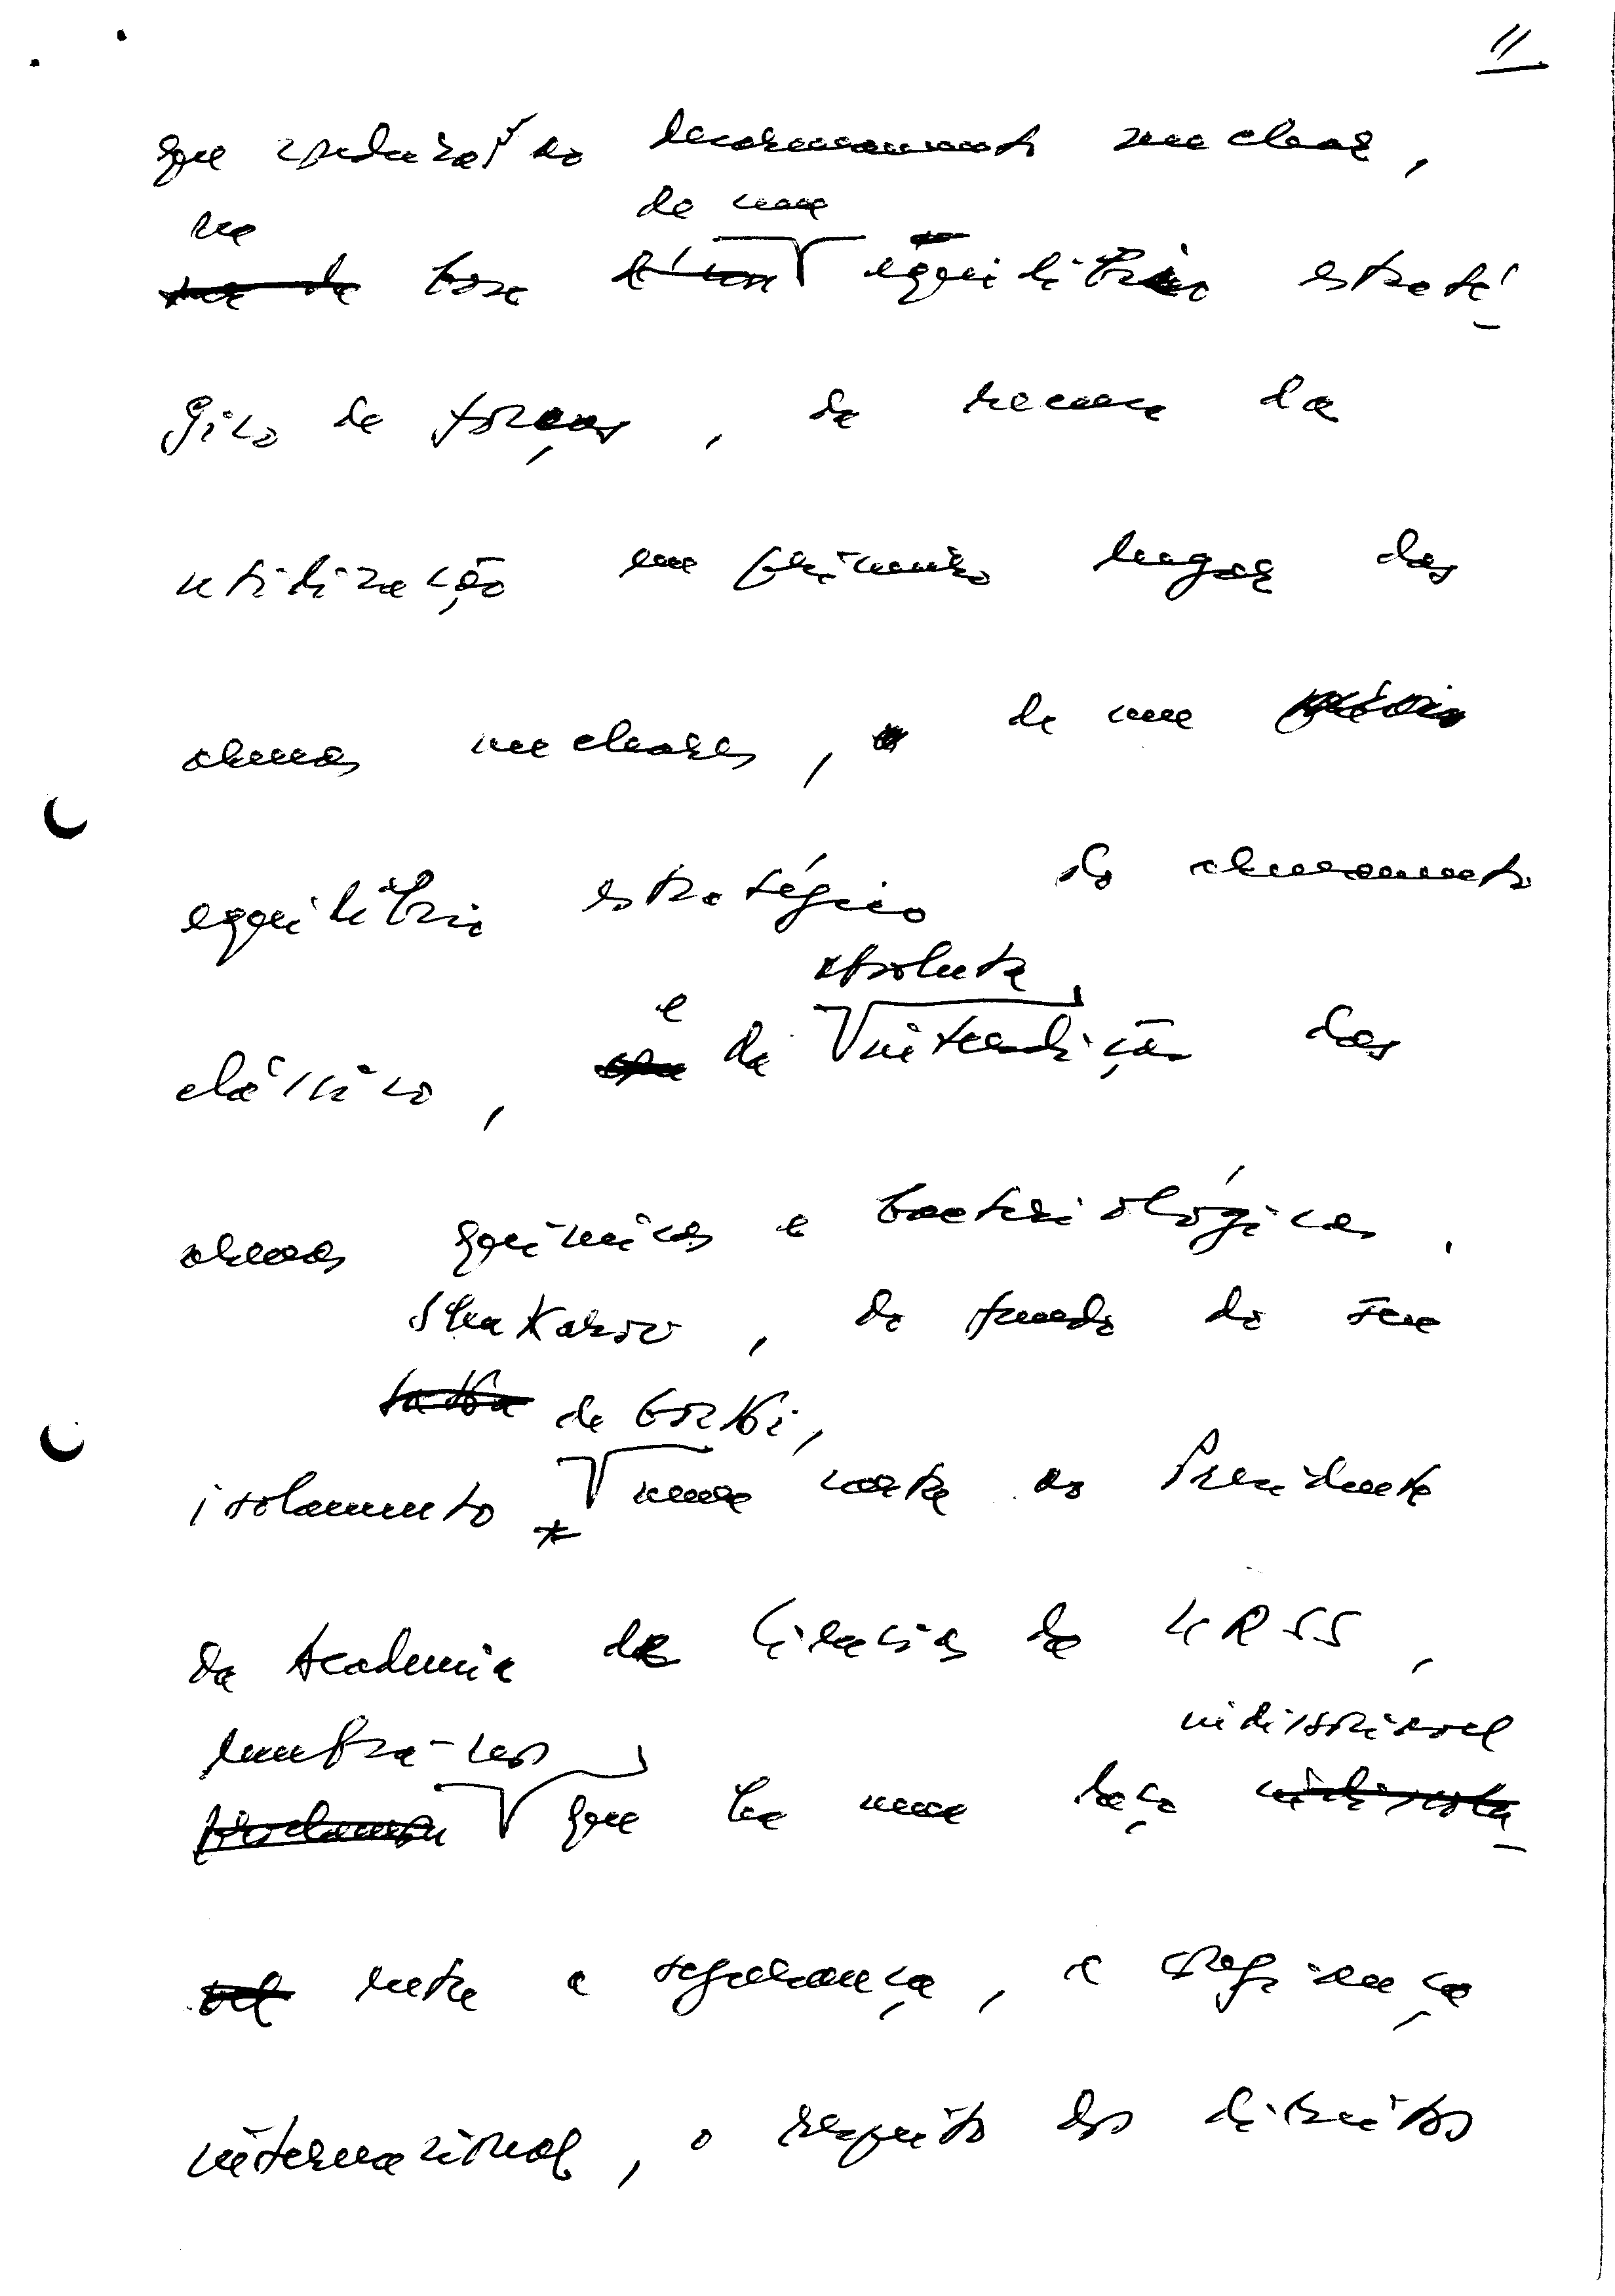 11
que conduza ao desarmamento nuclear,
na de um
base equilíbrio estraté-
gico de forças, da recusa da
utilização em primeiro lugar das
armas nucleares, de um
equilíbrio estratégico do armamento
absoluta
e
clássico, da interdição das
armas químicas e bacteriológicas.
Sakharov, do fundo do seu
de Gorki,
isolamento * numa carta ao Presidente
da Academia das Ciências da URSS,
indissociável
lembra-nos
proclamou que há um laço indissociá-
vel entre a segurança, a confiança
internacional, o respeito dos direitos